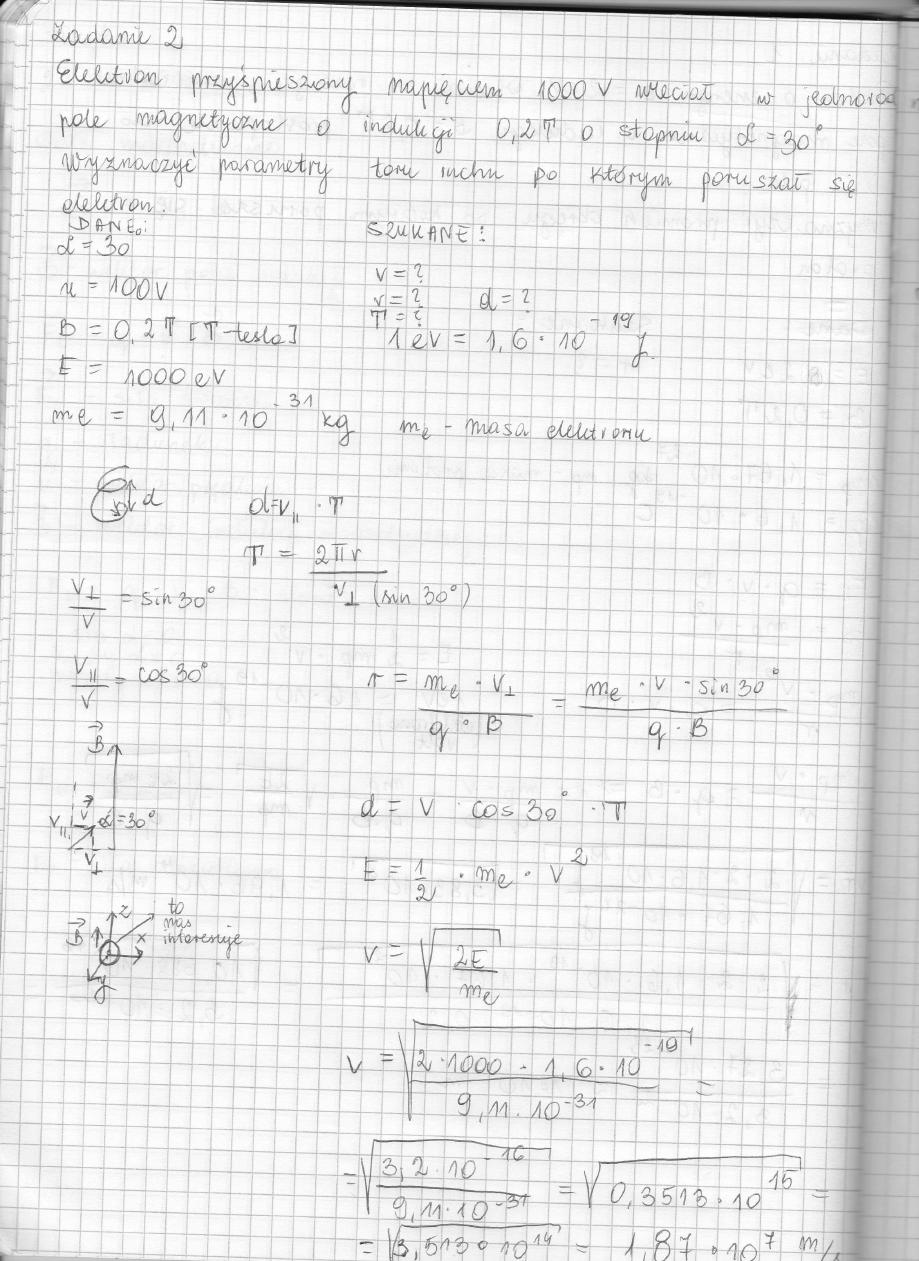 Zadanie 2
Elektron przyśpieszony napięciem 1000 V wleciał w jednorod
pole magnetyczne o indukcji 0,2T o stopniu α = 30°
Wyznaczyć parametry toru ruchu po którym poruszał się
elektron.
DANE: SZUKANE:
α = 30
u = 100V v = ?
r = ? d = ?
T = ?
B = 0,2T [T-tesla] 1 eV = 1,6 · 10^-19 J
E = 1000 eV
me = 9,11 · 10^-31 kg me - masa elektronu
d d = v|| · T
T = 2πr / v⊥ (sin 30°)
v⊥ / v = sin 30°
v|| / v = cos 30° r = me · v⊥ / q · B = me · v · sin 30° / q · B
B
v|| v α = 30° d = v · cos 30° · T
v⊥
E = 1/2 · me · v^2
B z to
nas
x interesuje
y
v = √(2E / me)
v = √(2 · 1000 · 1,6 · 10^-19 / 9,11 · 10^-31) =
= √(3,2 · 10^-16 / 9,11 · 10^-31) = √(0,3513 · 10^15) =
= √(3,513 · 10^14) = 1,87 · 10^7 m/s